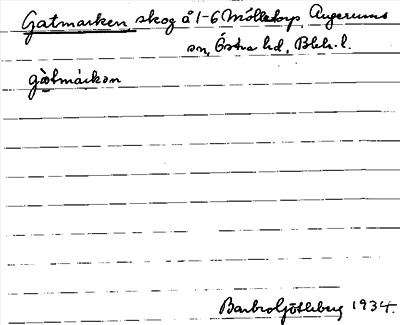 Gatmarken, skog å 1-6 Mölletorp, Augerums
sn, Östra hd, Blek. l.
gàtmárkən
Barbro Götleberg 1934.